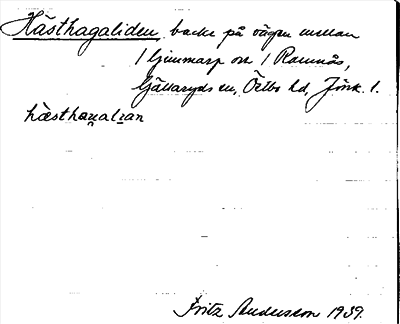 Hästhagaliden, backe på vägen mellan
1 Ljunnarp och 1 Ramnås,
Gällaryds sn, Östbo hd, Jönk. l.
hästhagalian
Fritz Andersson 1939.